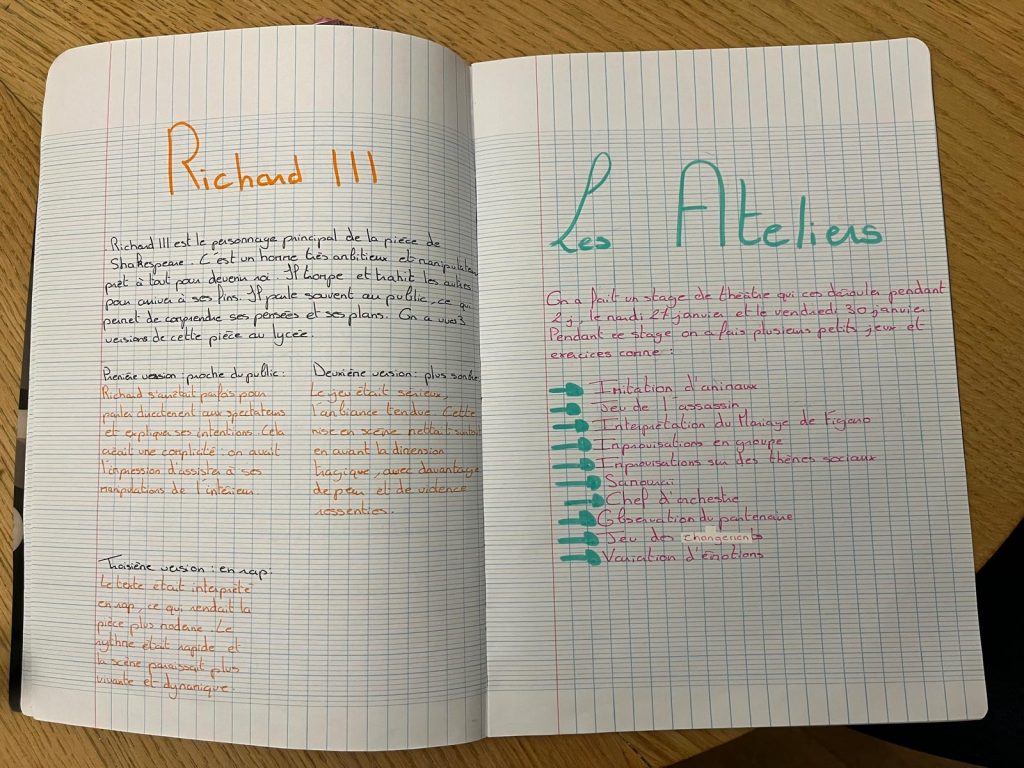 Richard III
Richard III est le personnage principal de la pièce de
Shakespeare. C'est un homme très ambitieux et manipulateur
prêt à tout pour devenir roi. Il trompe et trahit les autres
pour arriver à ses fins. Il parle souvent au public, ce qui
permet de comprendre ses pensées et ses plans. On a vues 3
versions de cette pièce au lycée.
Première version : proche du public :
Richard s'arrêtait parfois pour
parler directement aux spectateurs
et expliquer ses intentions. Cela
créait une complicité : on avait
l'impression d'assister à ses
manipulations de l'intérieur.
Deuxième version : plus sombre
Le jeu était sérieux,
l'ambiance tendue. Cette
mise en scène mettait surtout
en avant la dimension
tragique, avec davantage
de peur et de violence
ressenties.
Troisième version : en rap :
Le texte était interprété
en rap, ce qui rendait la
pièce plus moderne. Le
rythme était rapide et
la scène paraissait plus
vivante et dynamique.
Les Ateliers
On a fait un stage de théâtre qui ces dérouler pendant
2 j, le mardi 27 janvier et le vendredi 30 janvier.
Pendant ce stage on a fais plusieurs petits jeux et
exercices comme :
Imitation d'animaux
Jeu de l'assassin
Interprétation du Mariage de Figaro
Improvisations en groupe
Improvisations sur des thèmes sociaux
Samouraï
Chef d'orchestre
Observation du partenaire
Jeu des changements
Variation d'émotions